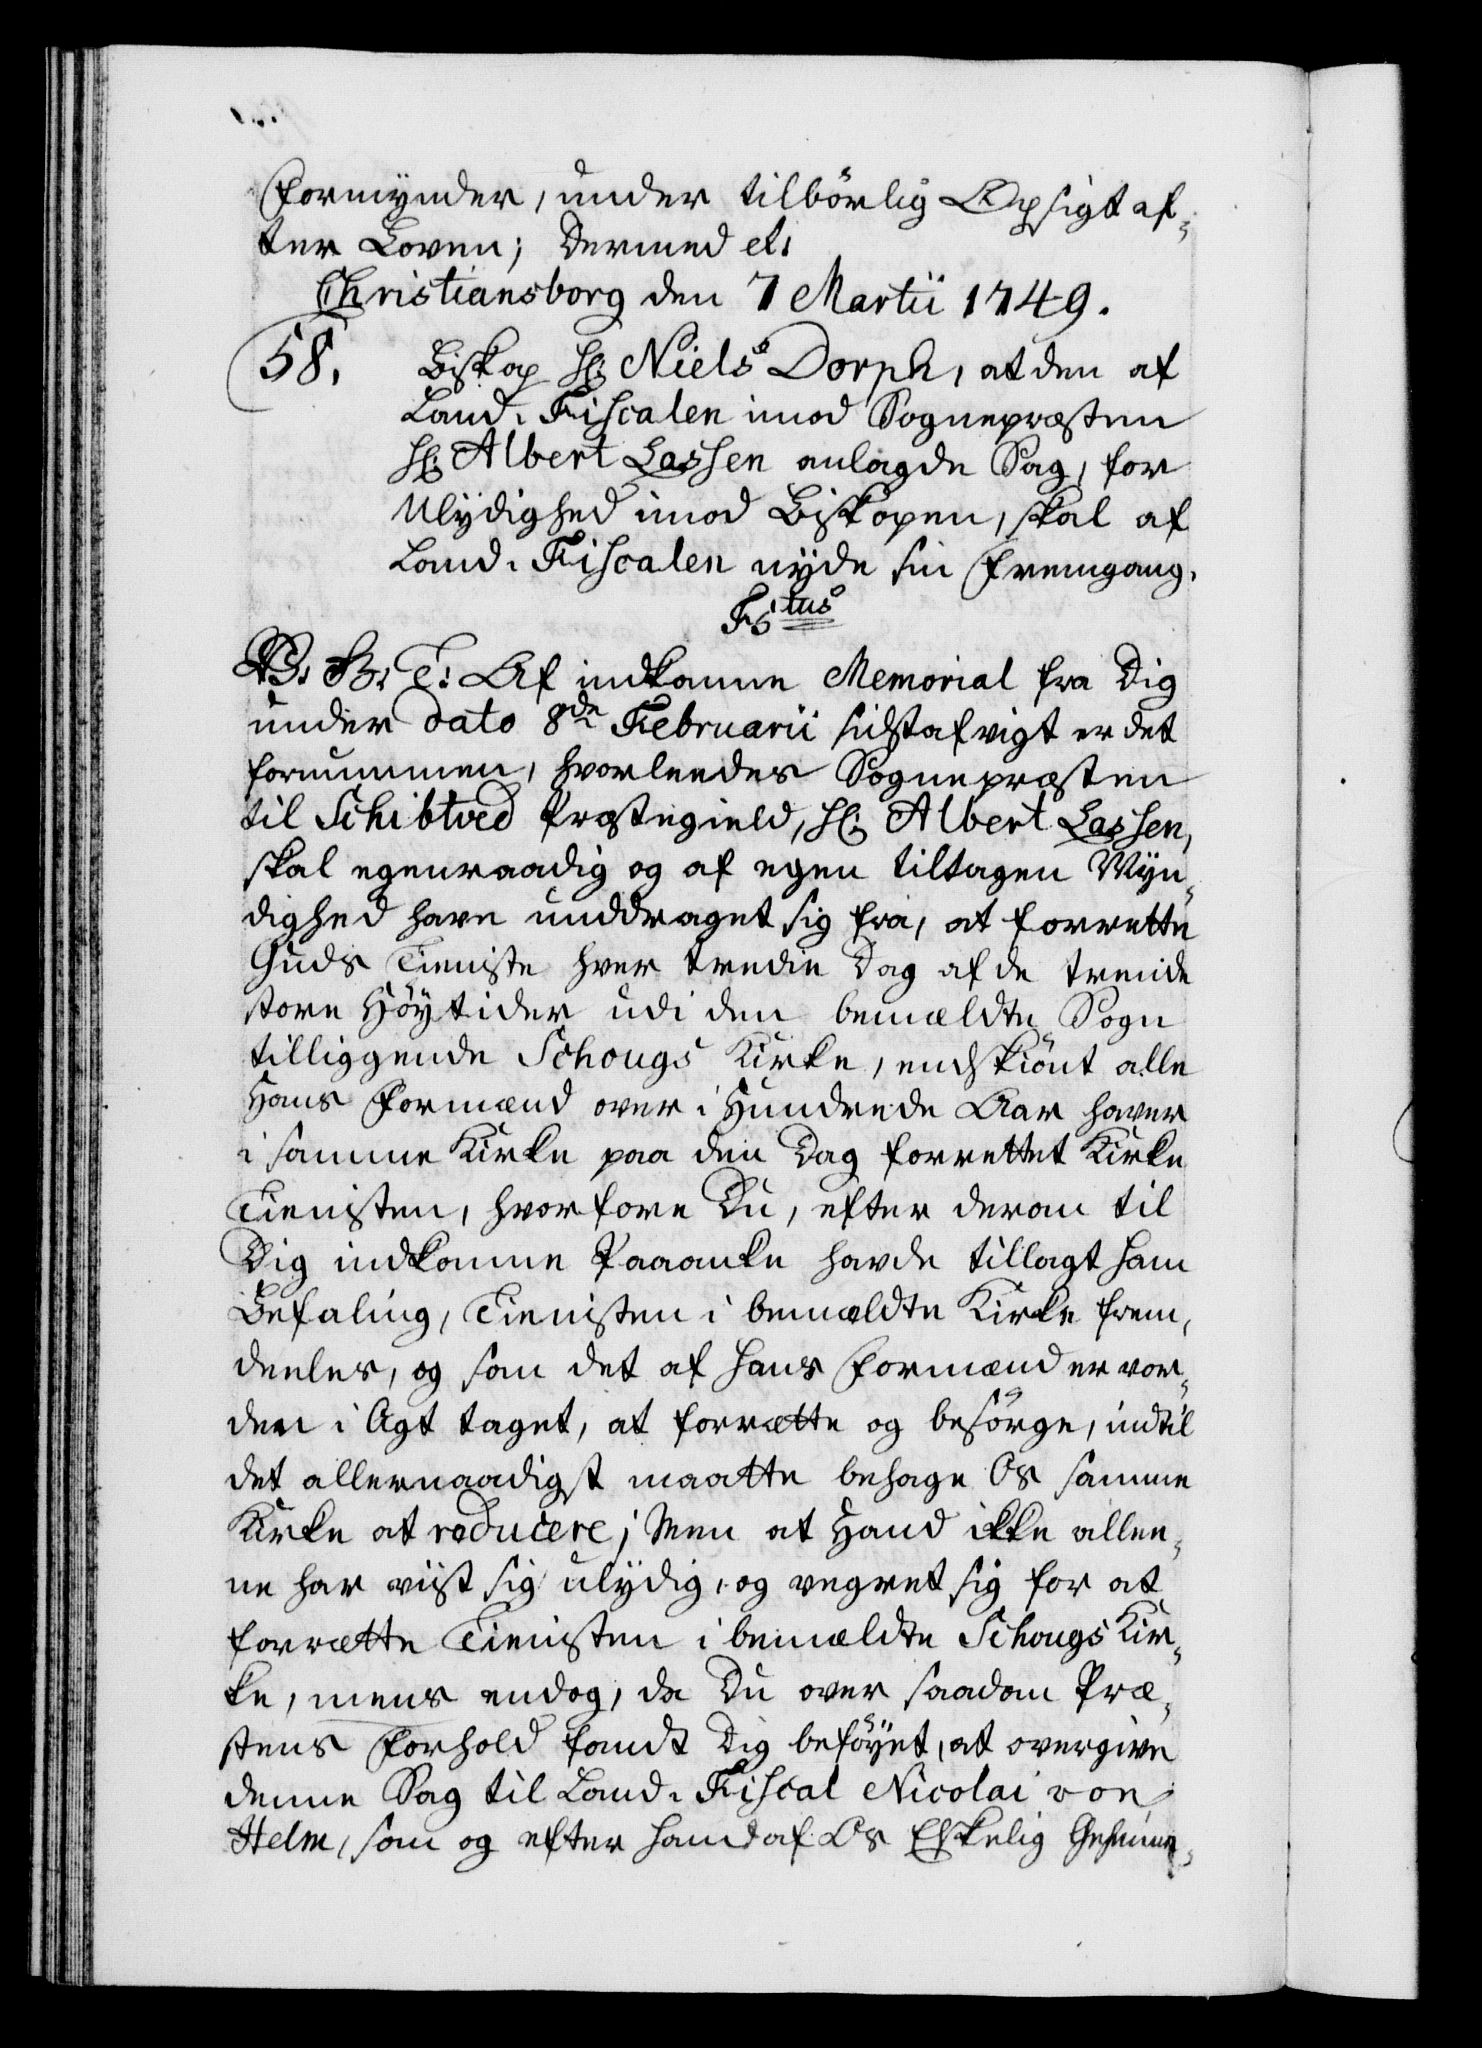 Formynder, under tilbörlig Opsigt ef-
ter Loven; Dermed etc
Christiansborg den 7 Martii 1749.
58. Biskop Hr: Niels Dorph, at den af
Land-Fiscalen imod Sognepræsten
Hr: Albert Lassen anlagde Sag, for
Ulydighed imod Biskopen, skal af
Land-Fiscalen nyde sin Fremgang.
F5tus
V. G. T: Af indkomne Memorial fra Dig
under dato 8de Februarii sidstafvigt er det
fornummen, hvorleedes Sognepræsten
til Schibtved Præstegield, Hr: Albert Lassen,
skal egenraadig og af egen tiltagen Myn-
dighed have unddraget sig fra, at forrette
Guds Tieniste hver tredie Dag af de trende
store Höytider udi den bemældte Sogn
tilliggende Schougs Kirke, endskiönt alle
Hans Formænd over i Hundrede Aar haver
i samme Kirke paa den Dag forrettet Kirke
Tienisten, hvorfore Du, efter derom til
Dig indkomne Paaanke havde tillagt ham
Befaling, Tienisten i bemældte Kirke frem-
deeles, og som det af hans Formænd er vor-
den i Agt taget, at forrætte og besörge, indtil
det allernaadigst maatte behage Os samme
Kirke at reducere; Men at Hand ikke alle-
ne har viist sig ulydig, og vegret sig for at
forrætte Tienisten i bemældte Schougs Kir-
ke, mens endog, da Du over saadan Præ-
stens Forhold fandt Dig beföyet, at overgive
denne Sag til Land-Fiscal Nicolai von
Helm, som og efter ham af Os Elskelig Geheime-